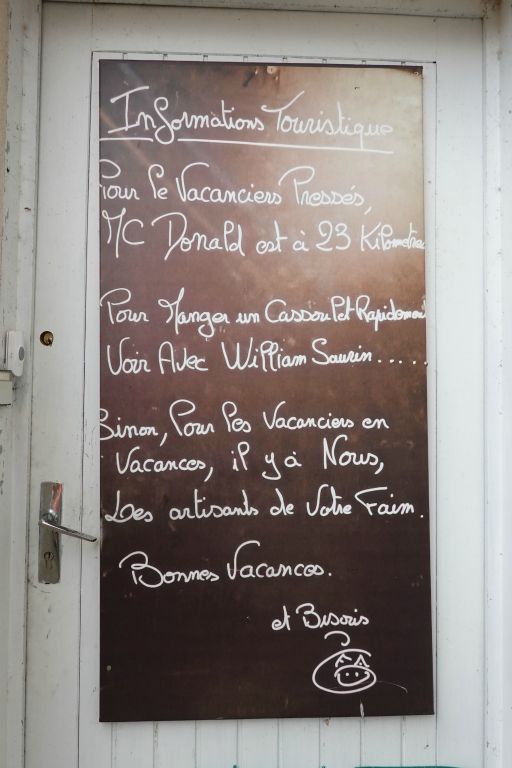 Informations Touristique
Pour le Vacanciers Pressés,
MC Donald est à 23 Kilometres
Pour Manger un Cassoulet Rapidement
Voir Avec William Saurin.....
Sinon, Pour les Vacanciers en
Vacances, il y a Nous,
Les artisants de Votre Faim.
Bonnes Vacances.
et Bisoris